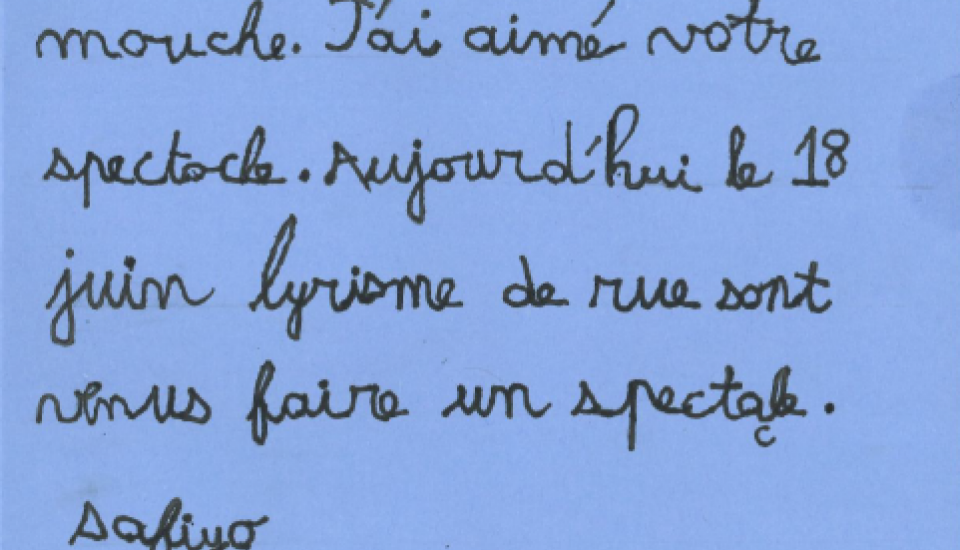 mouche. J'ai aimé votre
spectacle. Aujourd'hui le 18
juin lyrisme de rue sont
venus faire un spectacle.
Safiyo